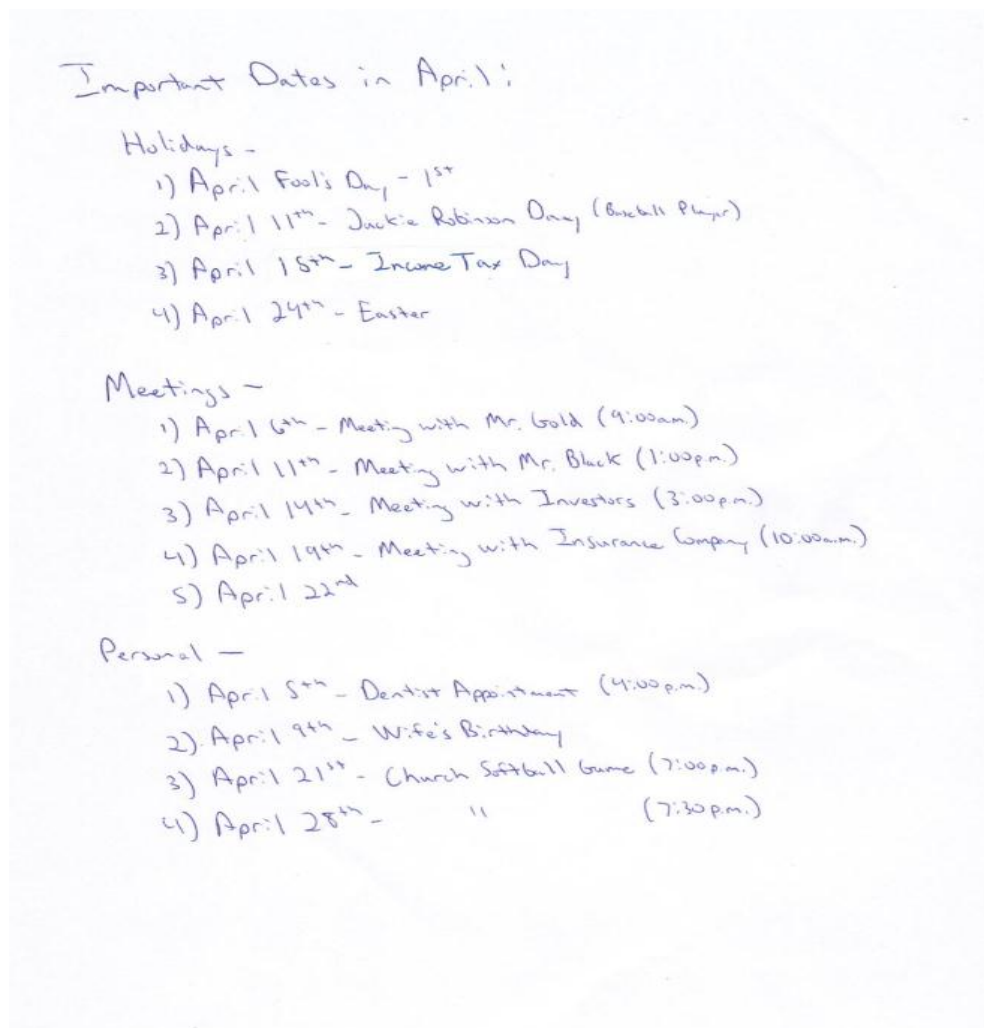 Important Dates in April:
Holidays -
1) April Fool's Day - 1st
2) April 11th - Jackie Robinson Day (Baseball Player)
3) April 15th - Income Tax Day
4) April 24th - Easter
Meetings -
1) April 6th - Meeting with Mr. Gold (9:00am.)
2) April 11th - Meeting with Mr. Black (1:00p.m.)
3) April 14th - Meeting with Investors (3:00p.m.)
4) April 19th - Meeting with Insurance Company (10:00a.m.)
5) April 22nd
Personal -
1) April 5th - Dentist Appointment (4:00p.m.)
2) April 9th - Wife's Birthday
3) April 21st - Church Softball Game (7:00p.m.)
4) April 28th - " (7:30p.m.)